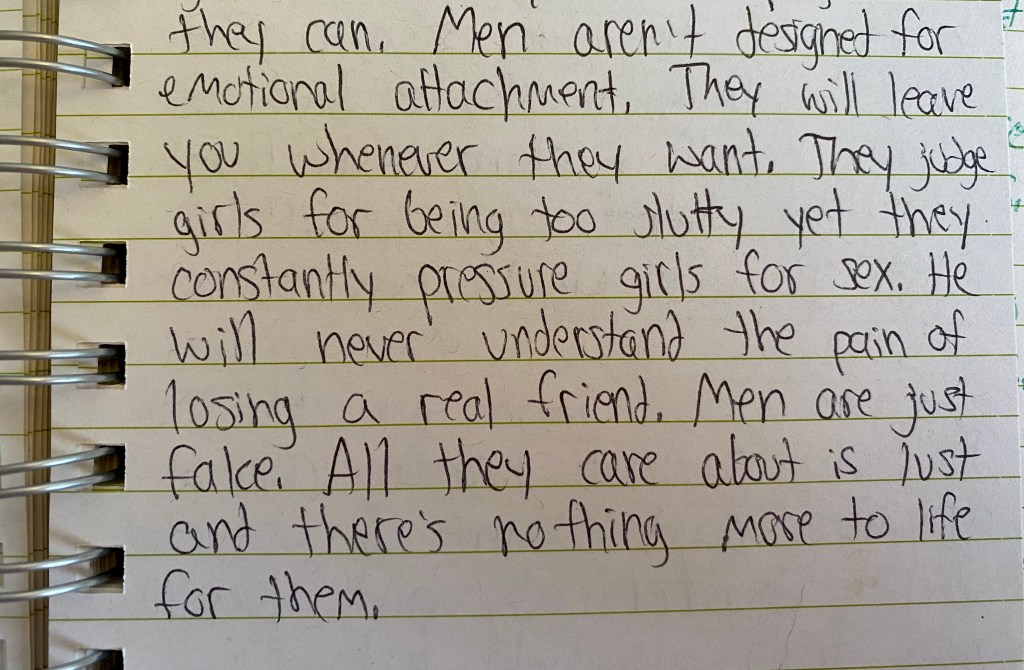 they can. Men aren't designed for
emotional attachment. They will leave
you whenever they want. They judge
girls for being too slutty yet they
constantly pressure girls for sex. He
will never understand the pain of
losing a real friend. Men are just
fake. All they care about is lust
and there's nothing more to life
for them.